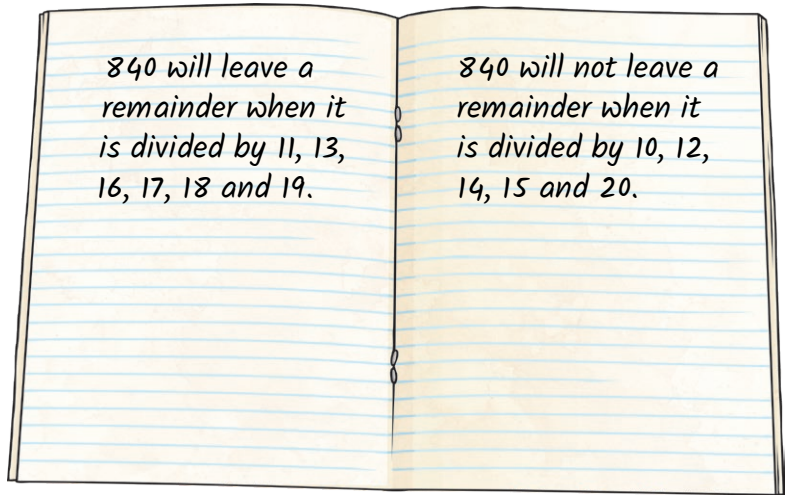 840 will leave a
remainder when it
is divided by 11, 13,
16, 17, 18 and 19.
840 will not leave a
remainder when it
is divided by 10, 12,
14, 15 and 20.